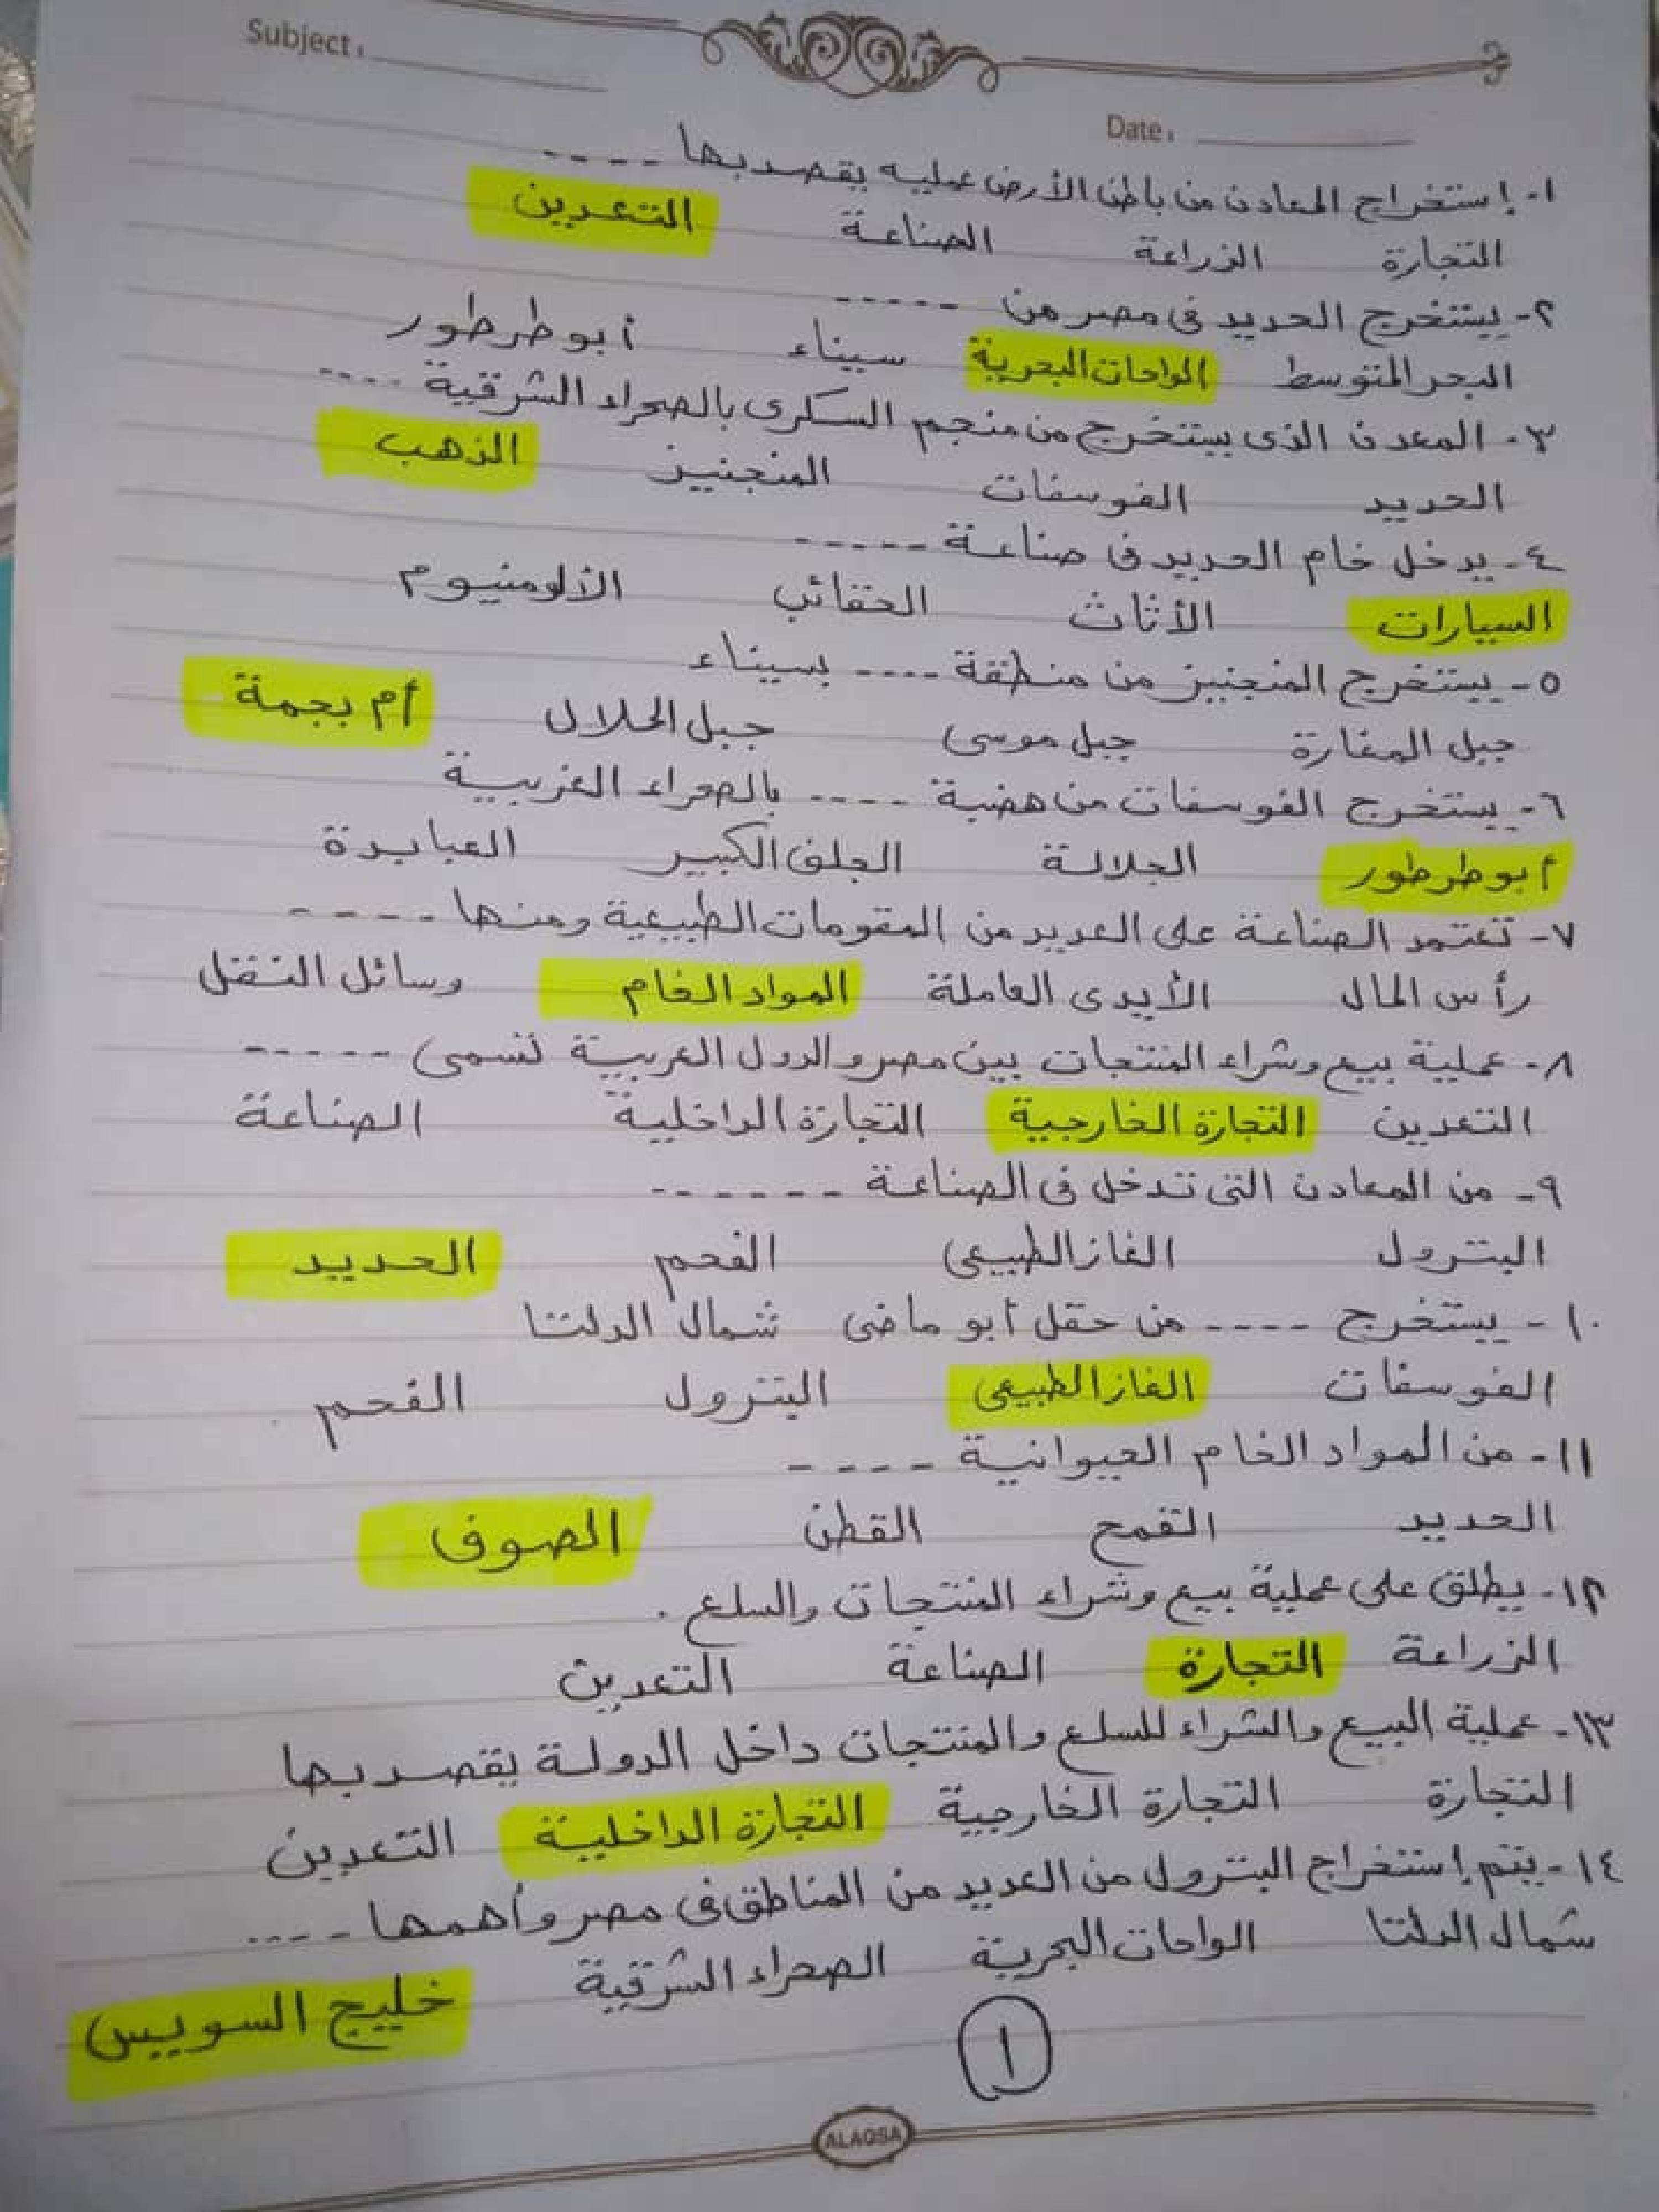 Subject:
Date:
١- إستخراج المعادن من باطن الأرض عمليه يقصد بها ----
التجارة الزراعة الصناعة التعدين
٢- يستخرج الحديد فى مصر من -----
البحر المتوسط الواحات البحرية سيناء أبو طرطور
٣- المعدن الذى يستخرج من منجم السكرى بالصحراء الشرقية ----
الحديد الفوسفات المنجنيز الذهب
٤- يدخل خام الحديد فى صناعة -----
السيارات الأثاث الحقائب الألومنيوم
٥- يستخرج المنجنيز من منطقة ---- بسيناء
جبل المغارة جبل موسى جبل الحلال أم بجمة
٦- يستخرج الفوسفات من هضبة ---- بالصحراء الغربية
أبو طرطور الجلالة الجلف الكبير العبابدة
٧- تعتمد الصناعة على العديد من المقومات الطبيعية ومنها ----
رأس المال الأيدى العاملة المواد الخام وسائل النقل
٨- عملية بيع وشراء المنتجات بين مصر والدول العربية تسمى -----
التعدين التجارة الخارجية التجارة الداخلية الصناعة
٩- من المعادن التى تدخل فى الصناعة ------
البترول الغاز الطبيعى الفحم الحديد
١٠- يستخرج ---- من حقل أبو ماضى شمال الدلتا
الفوسفات الغاز الطبيعى البترول الفحم
١١- من المواد الخام الحيوانية ----
الحديد القمح القطن الصوف
١٢- يطلق على عملية بيع وشراء المنتجات والسلع .
الزراعة التجارة الصناعة التعدين
١٣- عملية البيع والشراء للسلع والمنتجات داخل الدولة يقصد بها
التجارة التجارة الخارجية التجارة الداخلية التعدين
١٤- يتم إستخراج البترول من العديد من المناطق فى مصر وأهمها ----
شمال الدلتا الواحات البحرية الصحراء الشرقية خليج السويس
١
ALAQSA